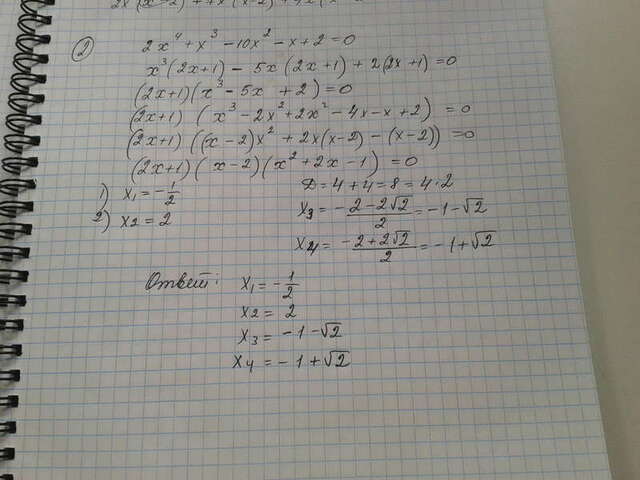 2x(x-2)
②
2x⁴+x³-10x²-x+2=0
x³(2x+1) - 5x(2x+1) + 2(2x+1)=0
(2x+1)(x³-5x+2)=0
(2x+1) (x³-2x²+2x²-4x-x+2) =0
(2x+1) ((x-2)x²+2x(x-2)-(x-2)) =0
(2x+1)(x-2)(x²+2x-1)=0
1) x₁=-1/2
D=4+4=8=4·2
2) x₂=2
x₃=-2-2√2/2=-1-√2
x₄=-2+2√2/2=-1+√2
Ответ: x₁=-1/2
x₂=2
x₃=-1-√2
x₄=-1+√2